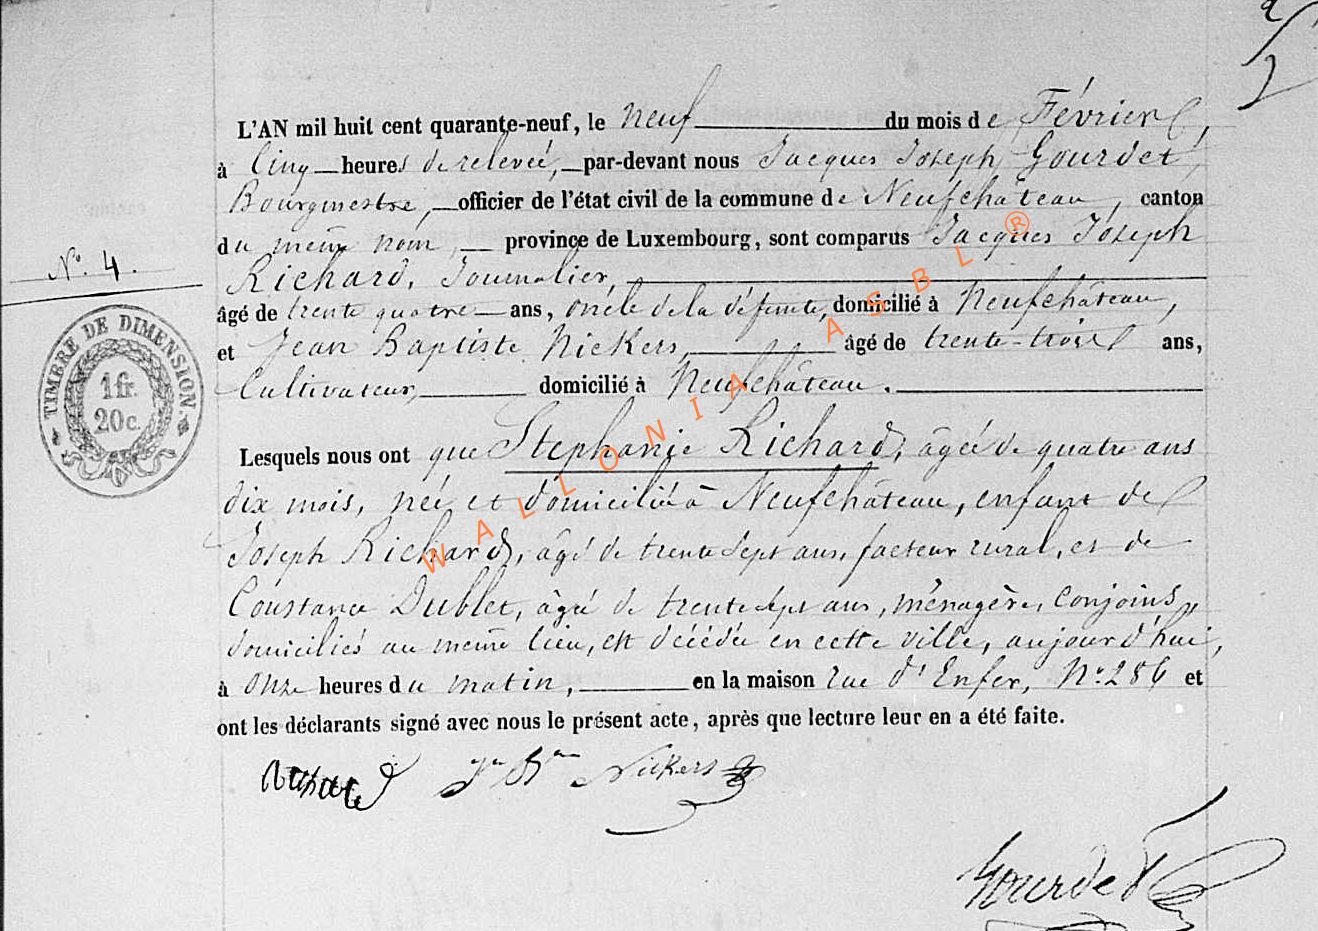 2/2
L'AN mil huit cent quarante-neuf, le neuf du mois de Février,
à Cinq heures de relevée, par-devant nous Jacques Joseph Gourdet,
Bourgmestre, officier de l'état civil de la commune de Neufchâteau, canton
du même nom, province de Luxembourg, sont comparus Jacques Joseph
N°. 4.
Richard, Journalier,
âgé de trente quatre ans, oncle de la défunte, domicilié à Neufchâteau,
et Jean Baptiste Nickers, âgé de trente-trois ans,
Cultivateur, domicilié à Neufchâteau.
TIMBRE DE DIMENSION.
1 fr.
20 c.
Lesquels nous ont que Stephanie Richard, âgée de quatre ans
dix mois, née et domiciliée à Neufchâteau, enfant de
Joseph Richard, âgé de trente sept ans, facteur rural, et de
Constance Dublet, âgée de trente sept ans, ménagère, conjoins
domiciliés au même lieu, est décédée en cette ville, aujourd'hui,
à onze heures du matin, en la maison rue d'Enfer, N° 286 et
ont les déclarants signé avec nous le présent acte, après que lecture leur en a été faite.
Richard Jn Bte Nickers
Gourdet
WALLONIA ASBL ®